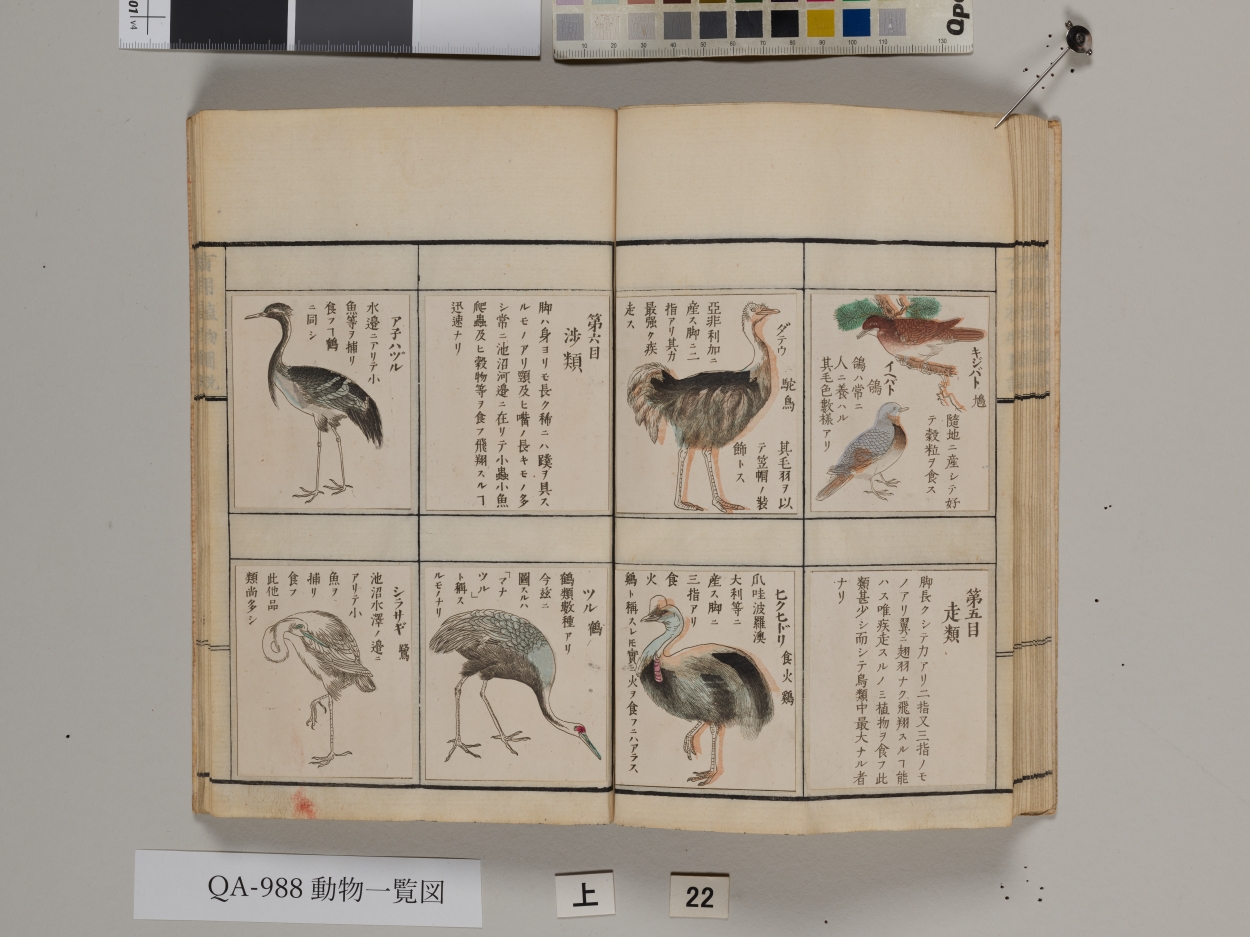 キジバト 鳩
隨地ニ産シテ好
テ穀粒ヲ食ス
イヘバト
鴿
鴿ハ常ニ
人ニ養ハル
其毛色數樣アリ
第五目
走類
脚長クシテ力アリ二指又三指ノモ
ノアリ翼ニ翅羽ナク飛翔スルヿ能
ハス唯疾走スルノミ植物ヲ食フ此
類甚少シ而シテ鳥類中最大ナル者
ナリ
ダテウ 駝鳥
亞非利加ニ
産ス脚ニ二
指アリ其力
最强ク疾
走ス
其毛羽ヲ以
テ笠帽ノ裝
飾トス
ヒクヒドリ 食火鷄
爪哇波羅澳
大利等ニ
産ス脚ニ
三指アリ
食
火
鷄ト稱スレ𪜈實ニ火ヲ食フニハアラス
第六目
渉類
脚ハ身ヨリモ長ク稀ニハ蹼ヲ具ス
ルモノアリ頸及ヒ嘴ノ長キモノ多
シ常ニ池沼河邊ニ在リテ小蟲小魚
爬蟲及ヒ穀物等ヲ食フ飛翔スルヿ
迅速ナリ
ツル 鶴
鶴類數種アリ
今玆ニ
圖スルハ
「マナ
ツル」
ト稱ス
ルモノナリ
ア子ハヅル
水邊ニアリテ小
魚等ヲ捕リ
食フヿ鶴
ニ同シ
シラサギ 鷺
池沼水澤ノ邊ニ
アリテ小
魚ヲ
捕リ
食フ
此他品
類尚多シ
QA-988 動物一覧図
上
22
01
v4
10 20 30 40 50 60 70 80 90 100 110 130